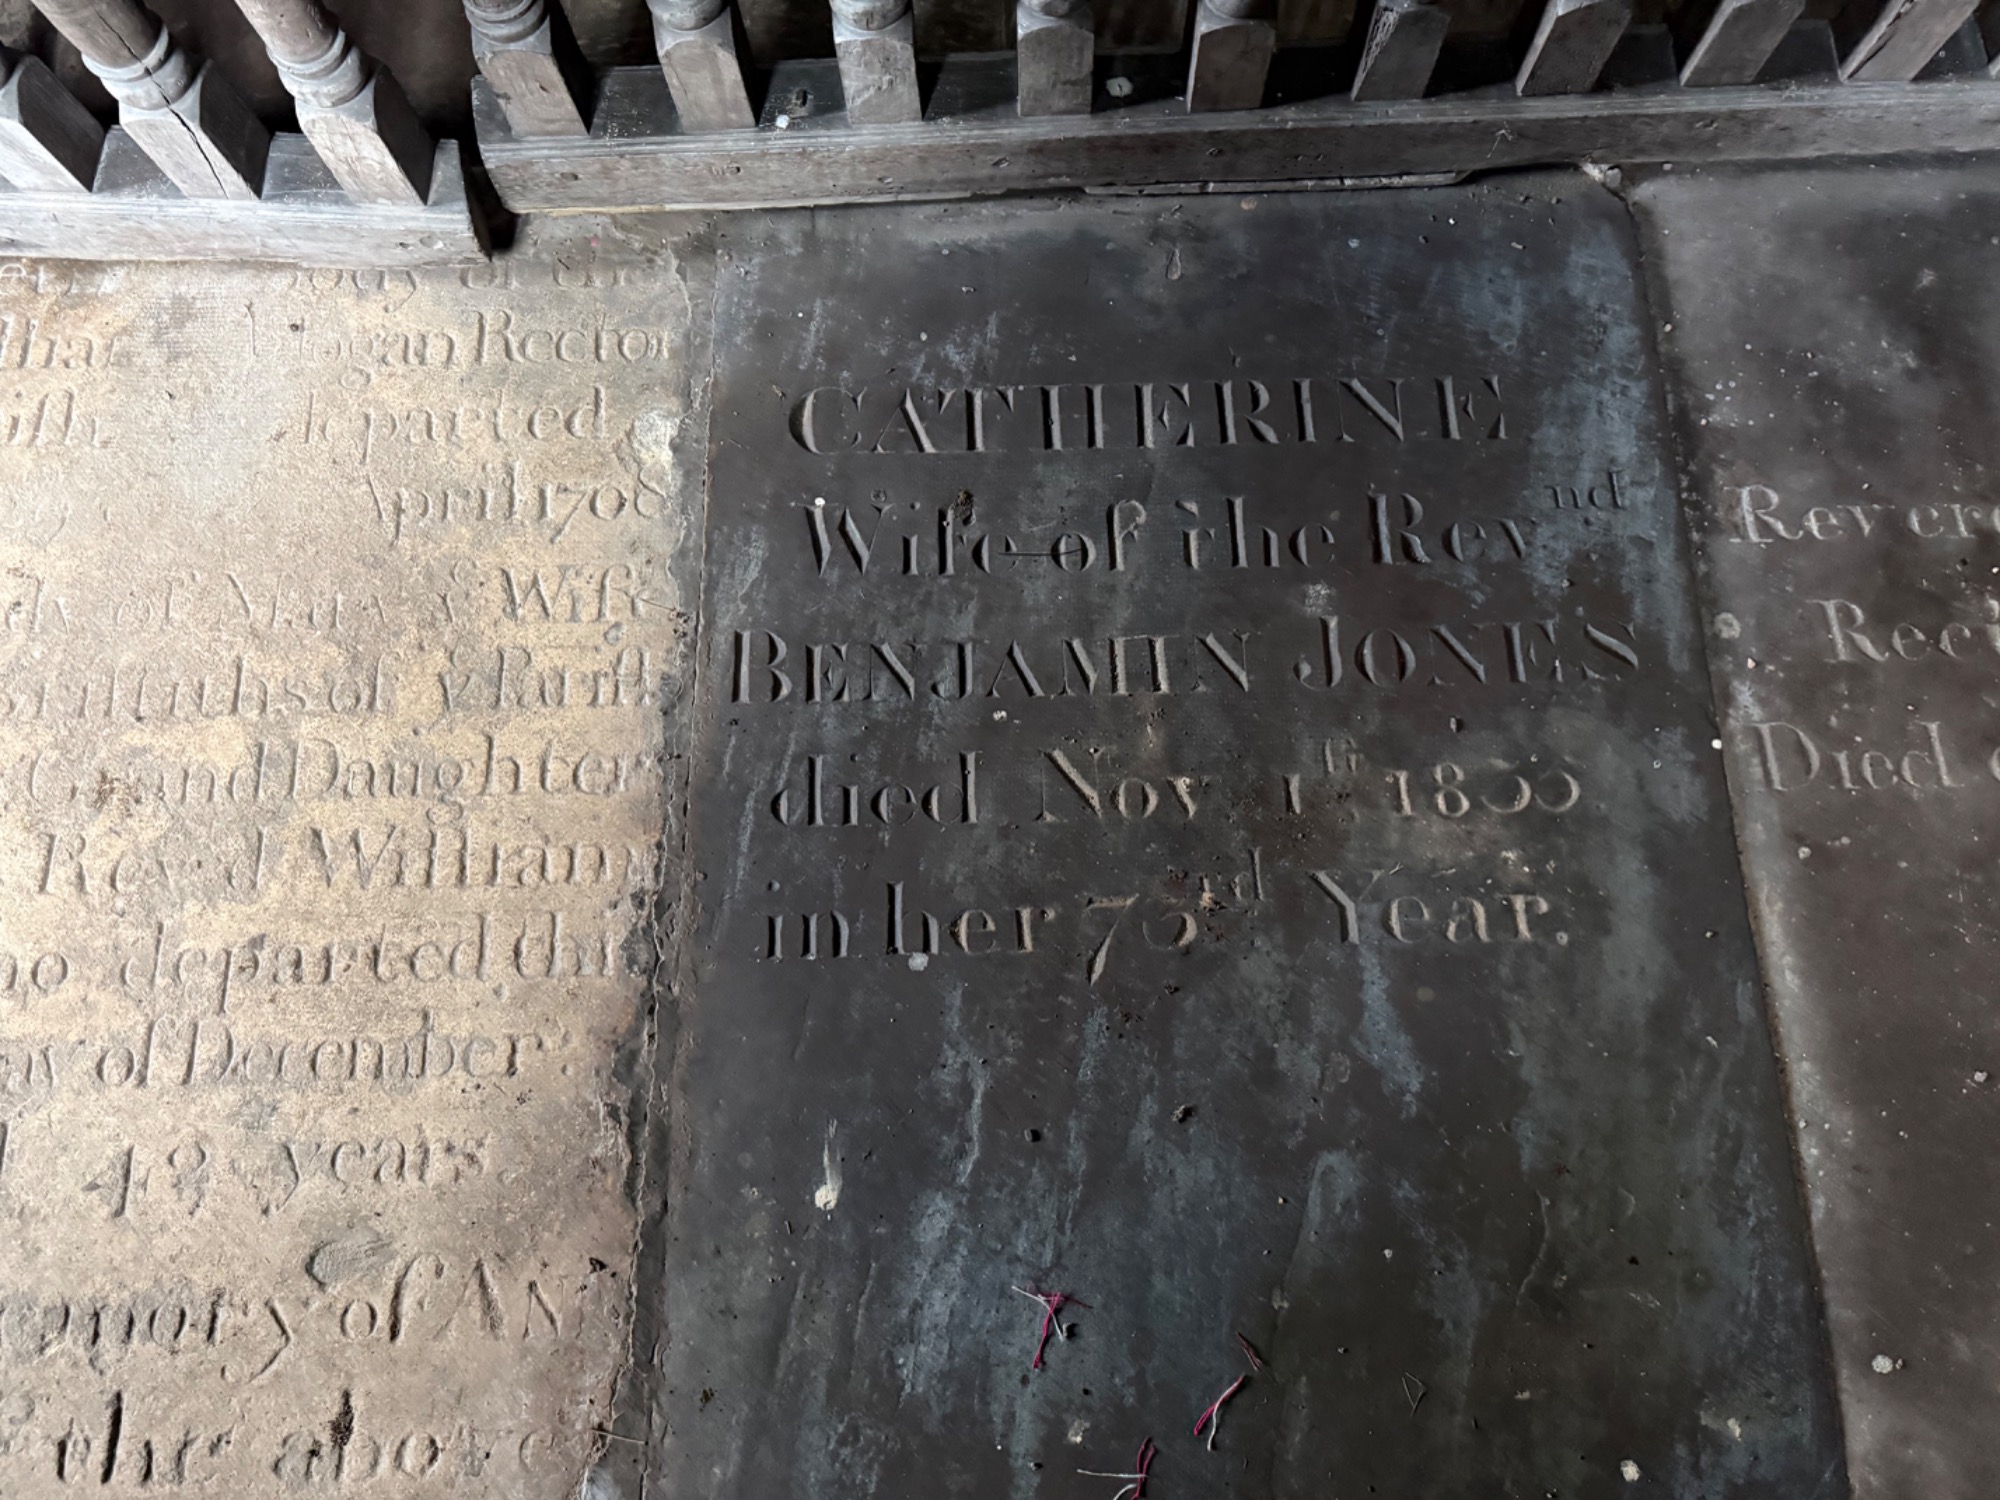 body of the
Hogan Rector
departed
April 1708
dy of Mary yᵉ Wife
Griffiths of yᵉ Parish
Grand Daughter
Revd William
who departed this
Day of December
48 years
memory of ANN
of the above
CATHERINE
Wife of the Revnd
BENJAMIN JONES
died Nov 1st 1833
in her 73rd Year.
Revere
Rect
Died